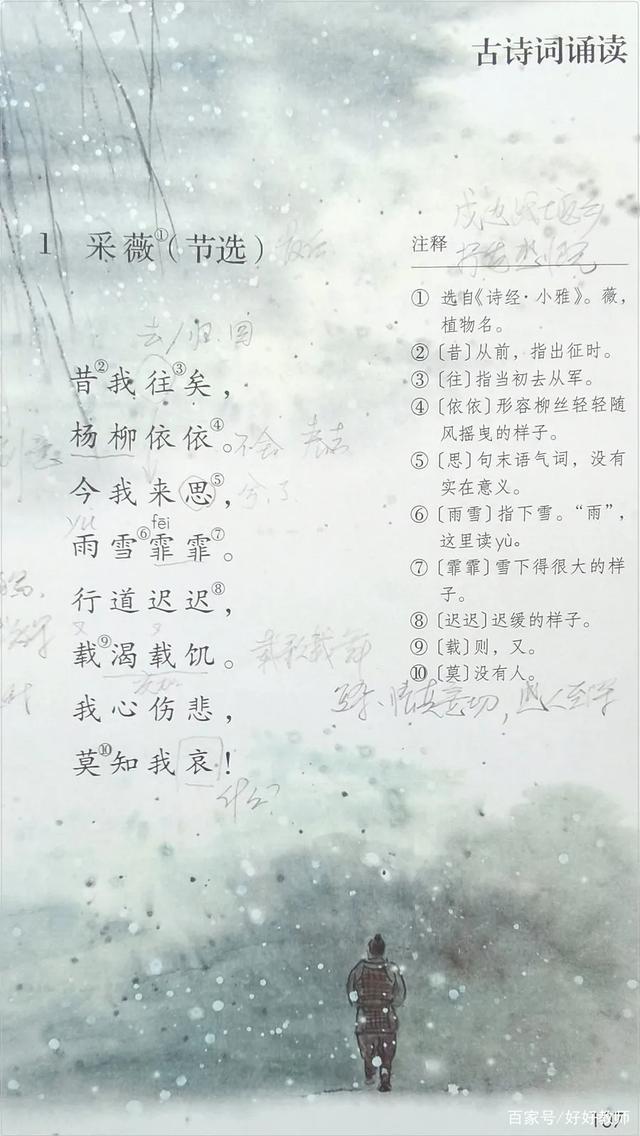 古诗词诵读
1 采薇①（节选）
昔②我往③矣，
杨柳依依④。
今我来思⑤，
yù fēi
雨雪⑥霏霏⑦。
行道迟迟⑧，
载⑨渴载饥。
我心伤悲，
莫⑩知我哀！
去/归、回
不舍
载歌载舞
什么？
注释
① 选自《诗经·小雅》。薇，
植物名。
② 〔昔〕从前，指出征时。
③ 〔往〕指当初去从军。
④ 〔依依〕形容柳丝轻轻随
风摇曳的样子。
⑤ 〔思〕句末语气词，没有
实在意义。
⑥ 〔雨雪〕指下雪。“雨”，
这里读yù。
⑦ 〔霏霏〕雪下得很大的样
子。
⑧ 〔迟迟〕迟缓的样子。
⑨ 〔载〕则，又。
⑩ 〔莫〕没有人。
百家号/好好教师
107